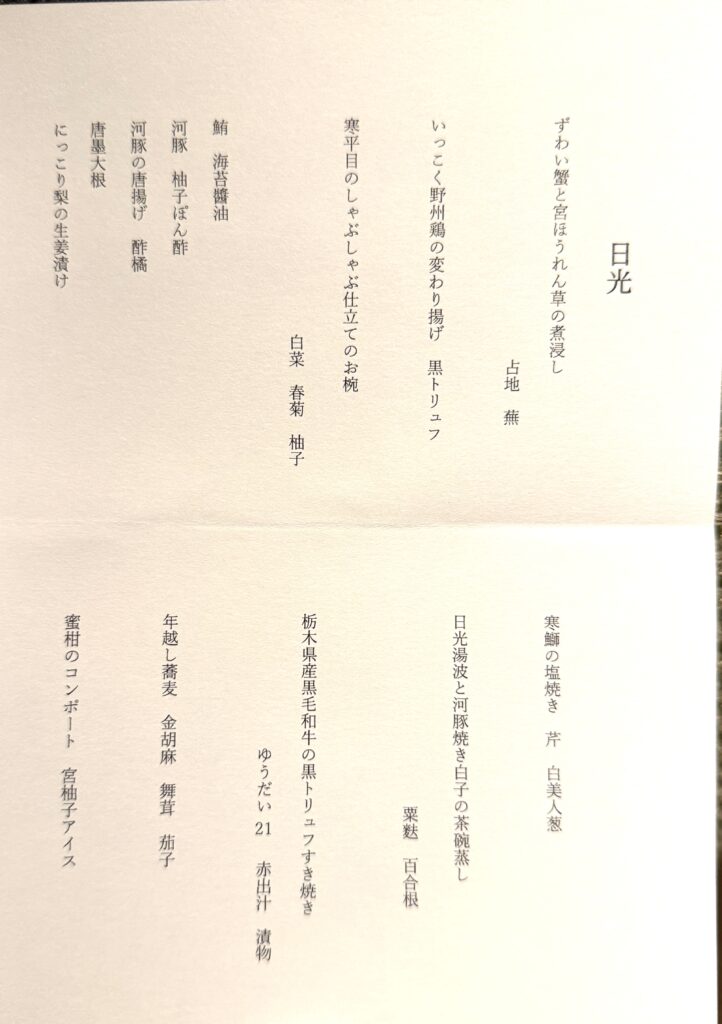 日光
ずわい蟹と宮ほうれん草の煮浸し
占地　蕪
いっこく野州鶏の変わり揚げ　黒トリュフ
寒平目のしゃぶしゃぶ仕立てのお椀
白菜　春菊　柚子
鮪　海苔醬油
河豚　柚子ぽん酢
河豚の唐揚げ　酢橘
唐墨大根
にっこり梨の生姜漬け
寒鰤の塩焼き　芹　白美人葱
日光湯波と河豚焼き白子の茶碗蒸し
粟麩　百合根
栃木県産黒毛和牛の黒トリュフすき焼き
ゆうだい21　赤出汁　漬物
年越し蕎麦　金胡麻　舞茸　茄子
蜜柑のコンポート　宮柚子アイス